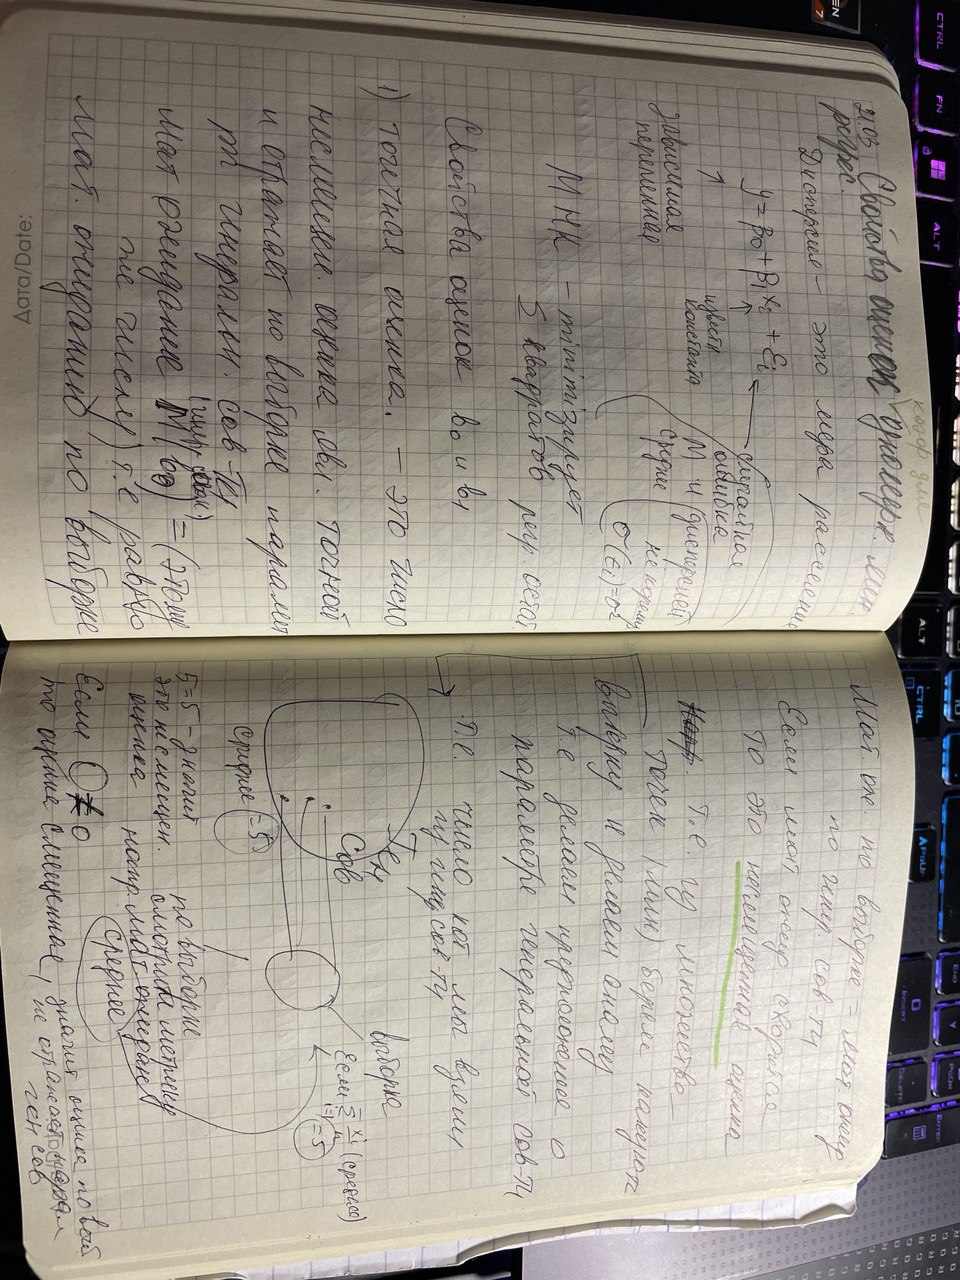 коэф. для
21.03 Свойства оценок одномерн. лин.
регрес.
Дисперсия – это мера рассеяния
y = β0 + β1 xi + εi
случайная
ошибка
известн
константа
зависимая
переменная
M и
среднее
дисперсией
σ(εi)=σ²
МНК – minimizирует
Σ квадратов регр. остат.
Свойства оценок b0 и b1
1) точечная оценка. – это число
несмещен. оценка явл. точной
и отражает по выборке парамет
ры генеральн. сов-ти
(генер. совок.)
Мат ожидание M(b0) = (этому
же числу) т.е равно
мат. ожиданию по выборке
Дата/Date:
Мат. ож. по выборке = мат. ожид
по генр. сов-ти
Если мат ожид сходится
то это несмещенная оценка
Т.е. из множества
точек (млн) берем какую-то
выборку и делаем анализ
т.е делаем предположение о
параметре генеральной сов-ти
Т.е. число кот мы взяли
из генр сов-ти
Ген
Сов
выборка
Если Σ i=1 xi/n (среднее)
=5
среднее =5
5=5 – значит
это несмещен.
оценка
по выборке
смотрим метрику
напр. мат ожидан
среднее
Если ≠
то оценка смещенная, значит оценка по выб
не отражает парам
ген сов